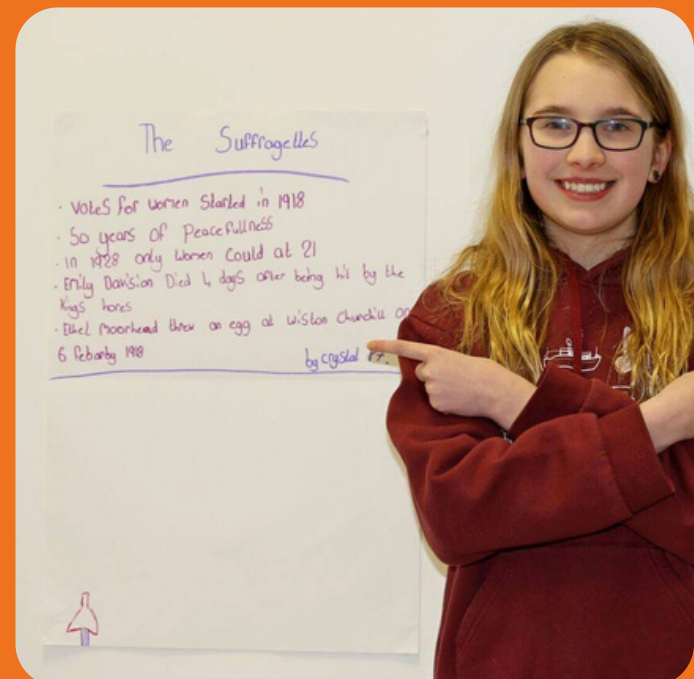 The Suffragettes
· Votes for women Started in 1918
· 50 years of Peacefullness
· in 1928 only women Could at 21
· Emily Davision Died 4 days after being hit by the
Kings hores
· Ethel Moorhead threw an egg at Wiston Churchill on
6 Febarby 1918
by crystal